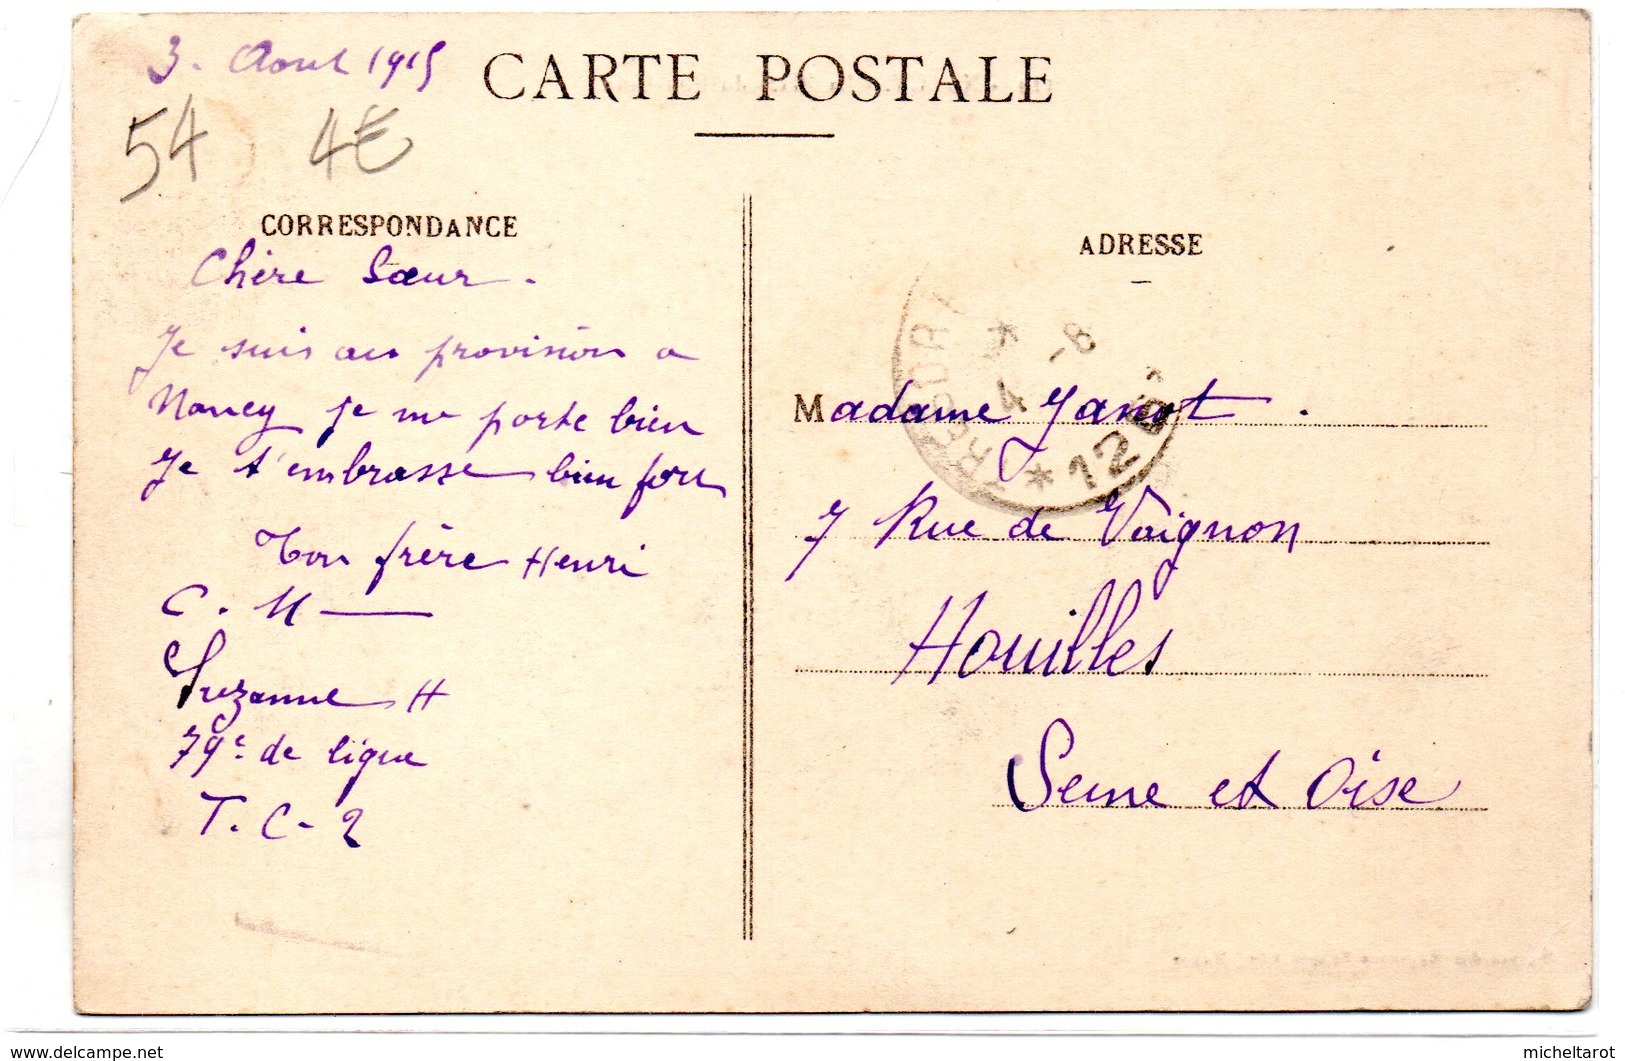 3. Aout 1915
CARTE POSTALE
54 4€
CORRESPONDANCE
Chère Sœur.
Je suis au provision a
Nancy je me porte bien
Je t'embrasse bien fort
Ton frère Henri
C. H
Suzanne H
79e de ligne
T. C- 2
ADRESSE
TRESOR
* 4 -8 *
12
Madame Janot.
7 Rue de Vaignon
Houilles
Seine et Oise
www.delcampe.net
micheltarot